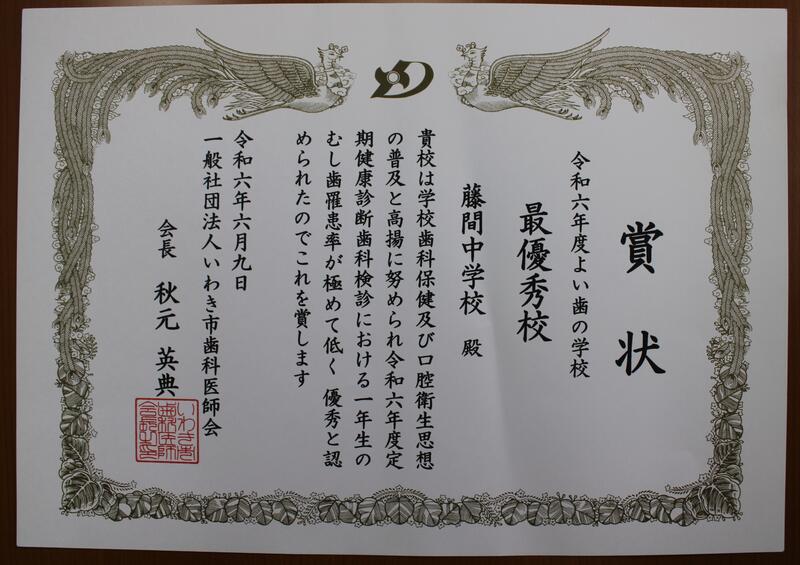 賞状
令和六年度よい歯の学校
最優秀校
藤間中学校 殿
貴校は学校歯科保健及び口腔衛生思想
の普及と高揚に努められ令和六年度定
期健康診断歯科検診における一年生の
むし歯罹患率が極めて低く 優秀と認
められたのでこれを賞します
令和六年六月九日
一般社団法人いわき市歯科医師会
会長 秋元 英典